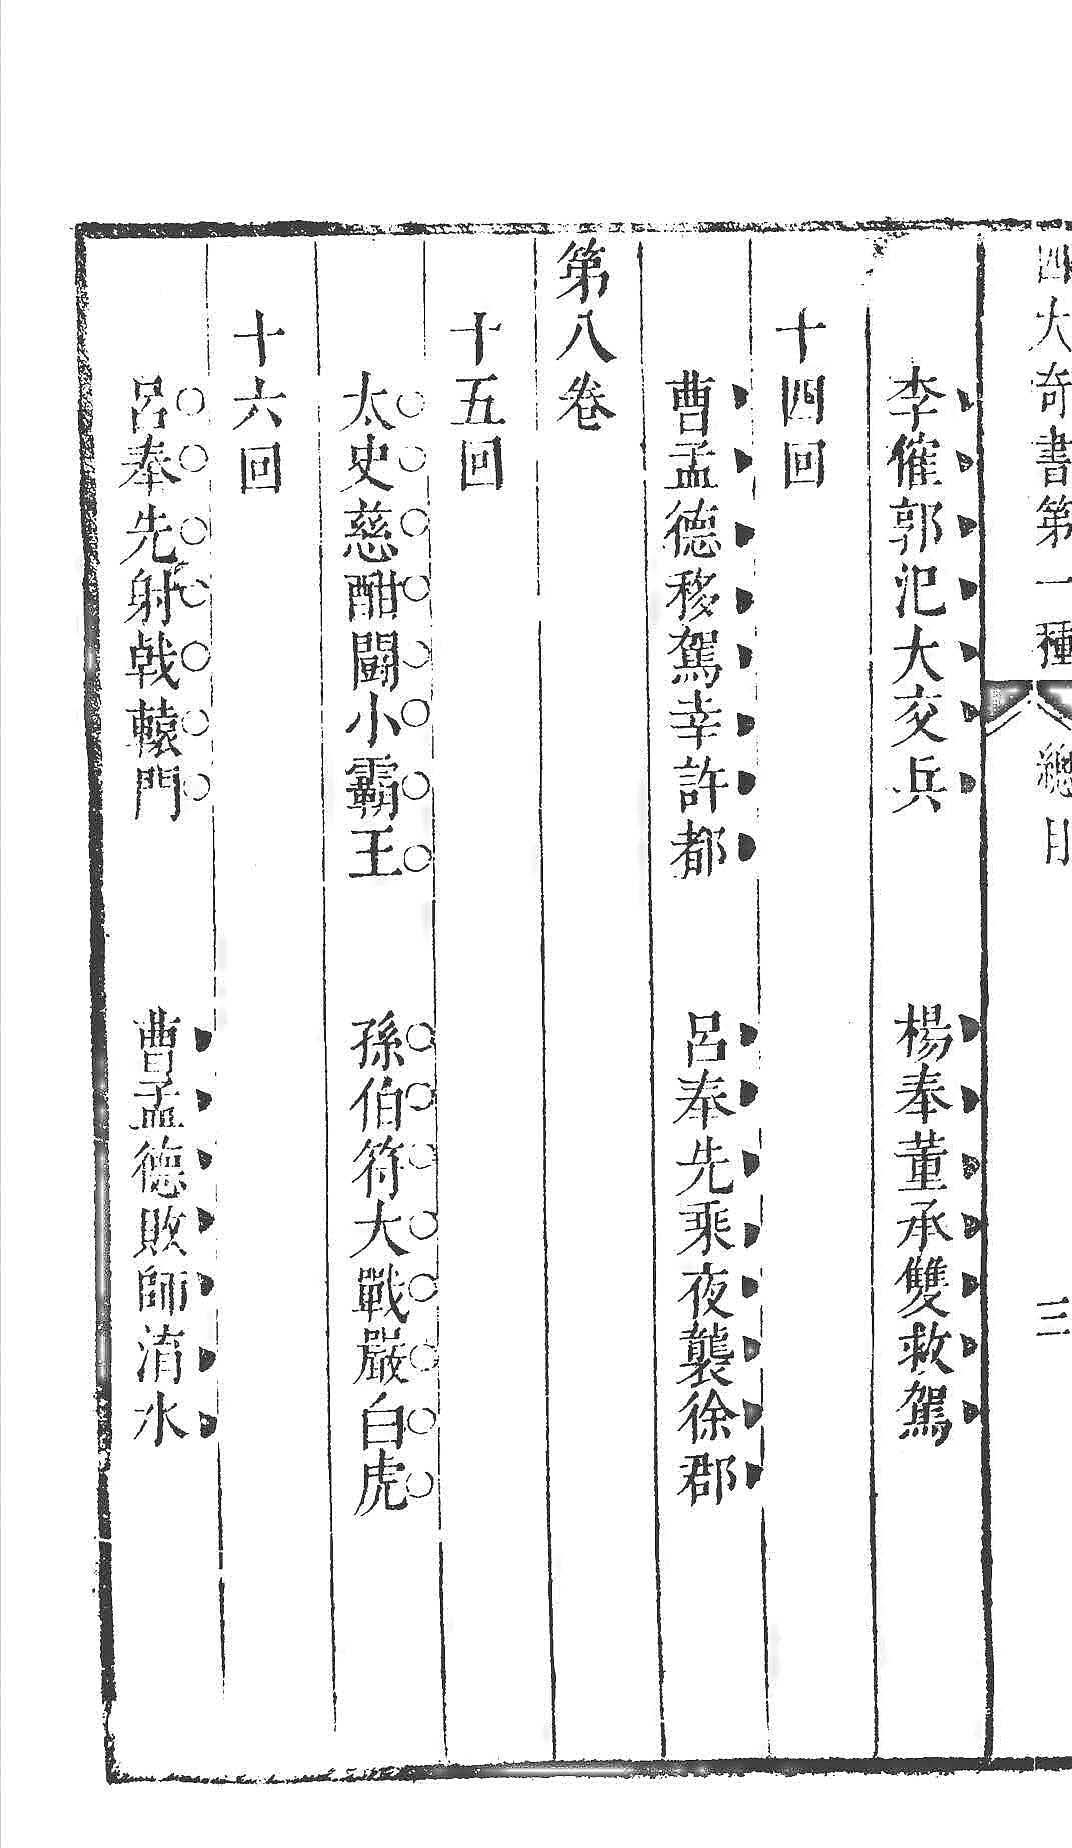 四大奇書第一種 總目 三
李傕郭汜大交兵 楊奉董承雙救駕
十四回
曹孟德移駕幸許都 呂奉先乘夜襲徐郡
第八卷
十五回
太史慈酣鬭小霸王 孫伯符大戰嚴白虎
十六回
呂奉先射戟轅門 曹孟德敗師淯水